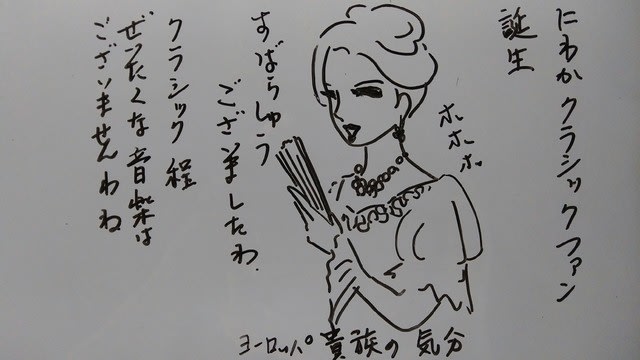 にわかクラシックファン
誕生
ホホホ
すばらしゅう
ございましたわ.
クラシック程
ぜいたくな音楽は
ございませんわね
ヨーロッパ貴族の気分